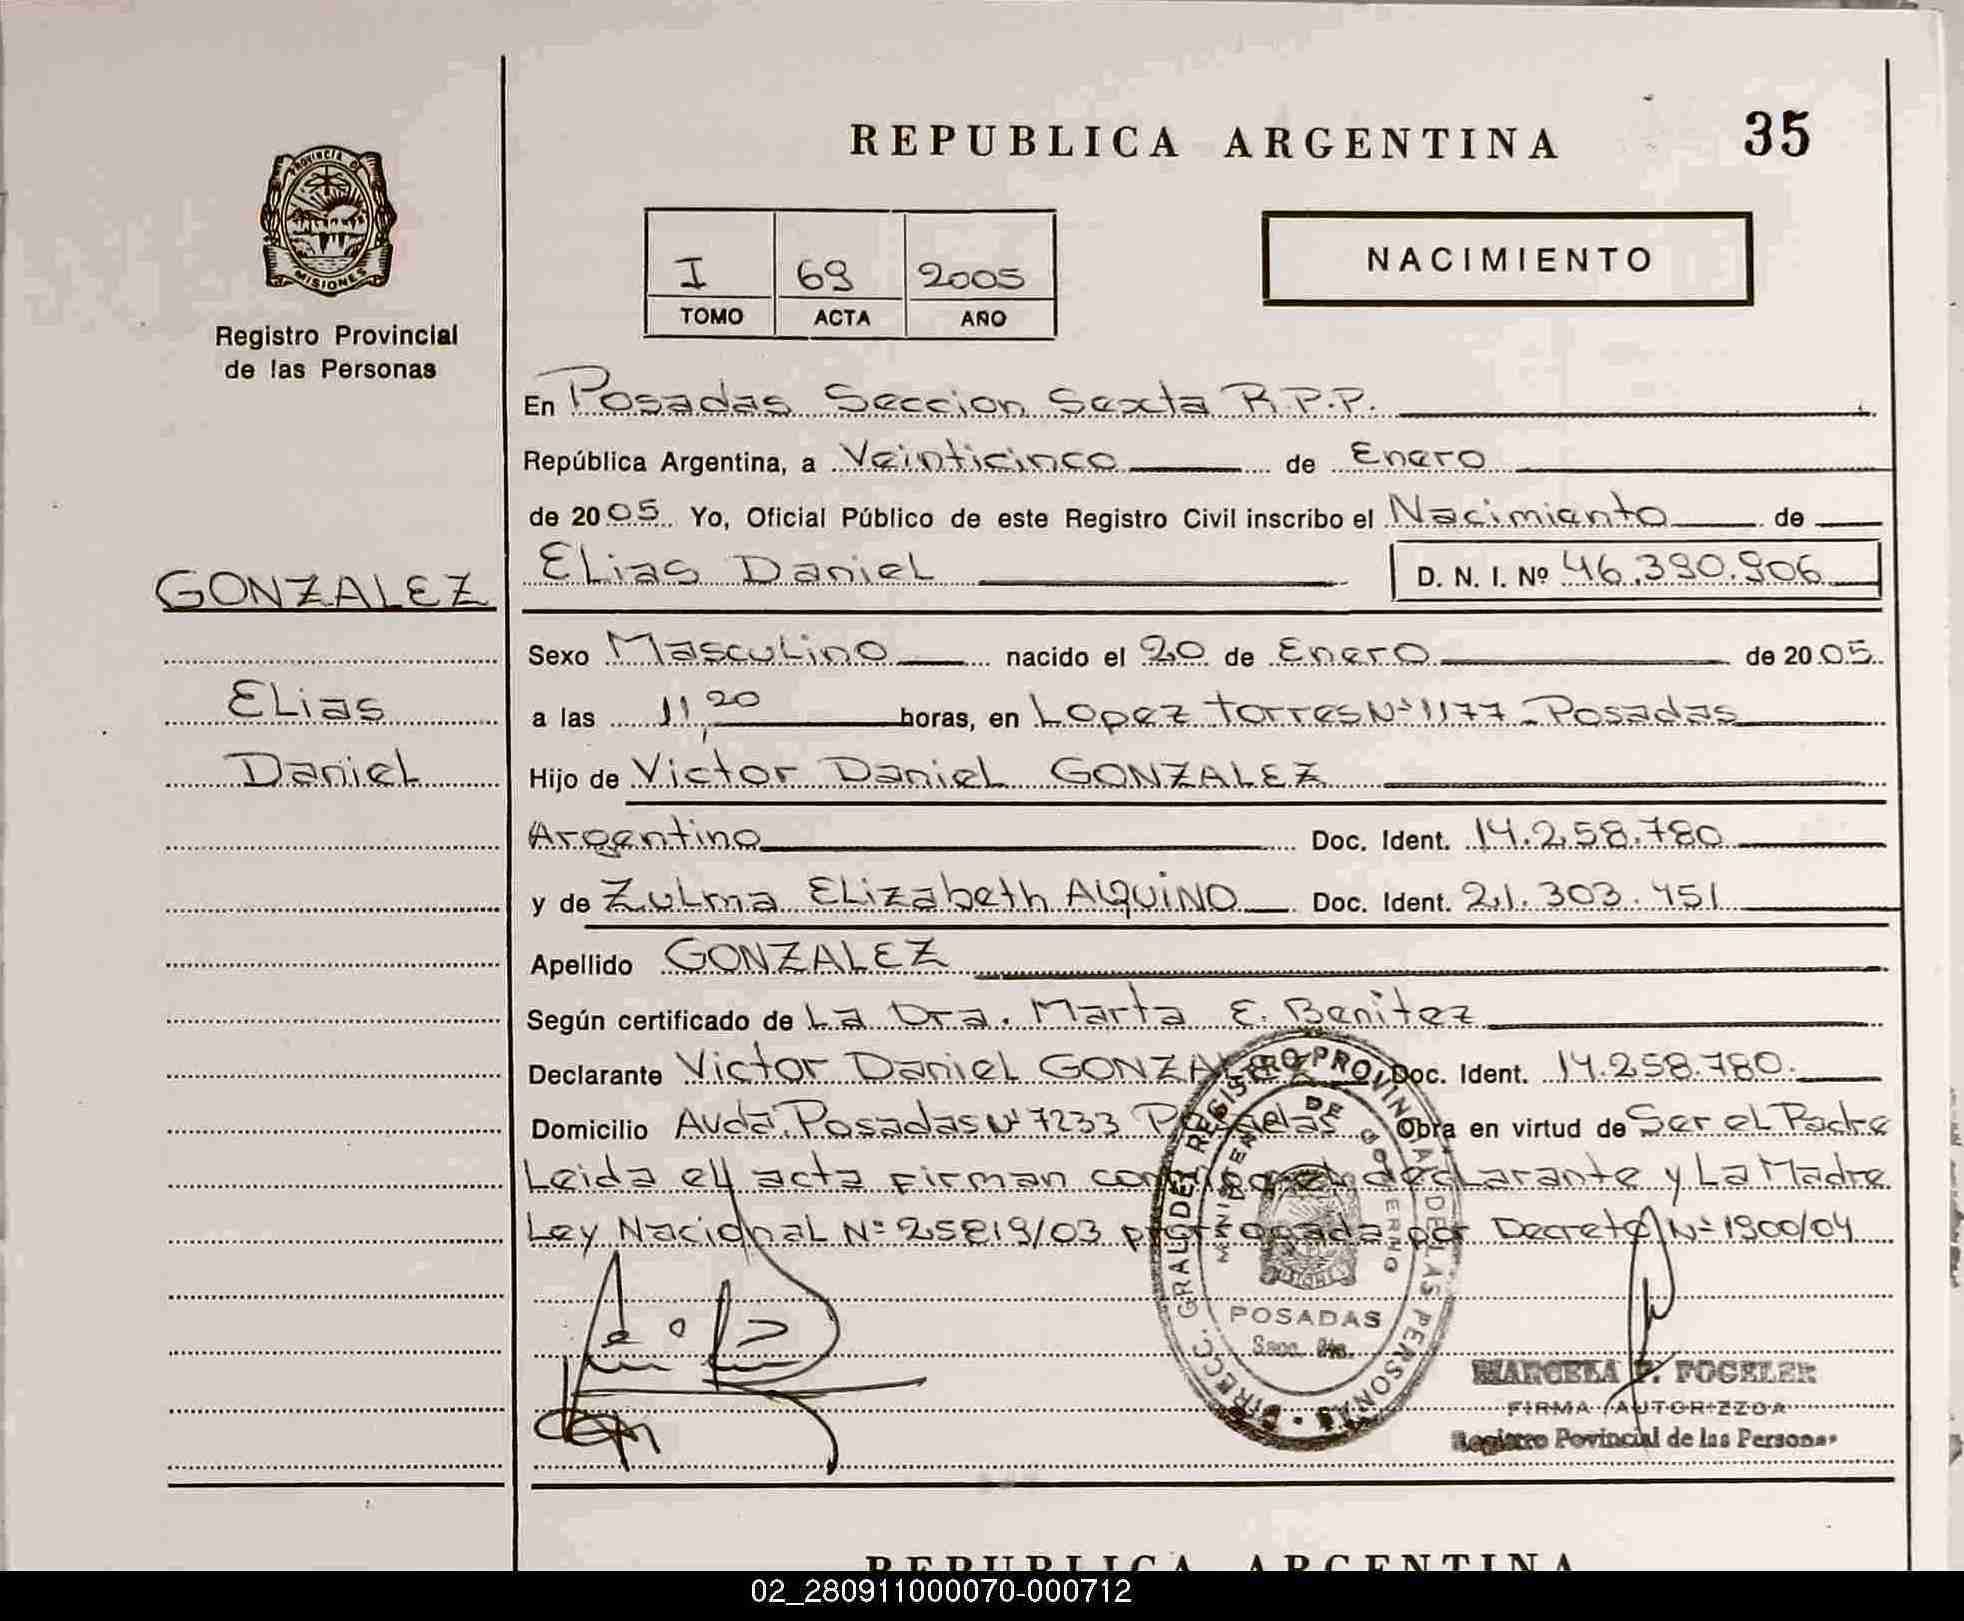 REPUBLICA ARGENTINA 35
PROVINCIA DE
MISIONES
Registro Provincial
de las Personas
I 69 2005
TOMO ACTA AÑO
NACIMIENTO
En Posadas Seccion Sexta R.P.P.
República Argentina, a Veinticinco de Enero
de 2005 Yo, Oficial Público de este Registro Civil inscribo el Nacimiento de
Elias Daniel D. N. I. Nº 46.390.906
GONZALEZ
Elias
Daniel
Sexo Masculino nacido el 20 de Enero de 2005
a las 11,20 horas, en Lopez Torres Nº 1177 - Posadas
Hijo de Victor Daniel GONZALEZ
Argentino Doc. Ident. 14.258.780
y de Zulma Elizabeth AQUINO Doc. Ident. 21.303.451
Apellido GONZALEZ
Según certificado de La Dra. Marta E. Benitez
Declarante Victor Daniel GONZALEZ Doc. Ident. 14.258.780.
Domicilio Avda. Posadas Nº 7233 Posadas Obra en virtud de Ser el Padre
Leida el acta firman conmigo el declarante y La Madre
Ley Nacional Nº 25819/03 prorrogada por Decreto Nº 1900/04
DIRECC. GRAL. DEL REGISTRO PROVINCIAL DE LAS PERSONAS
MINISTERIO DE GOBIERNO
POSADAS
Secc. 6ta.
MARCELA F. FOGELER
FIRMA AUTORIZZDA
Registro Povincial de las Personas
REPUBLICA ARGENTINA
02_280911000070-000712